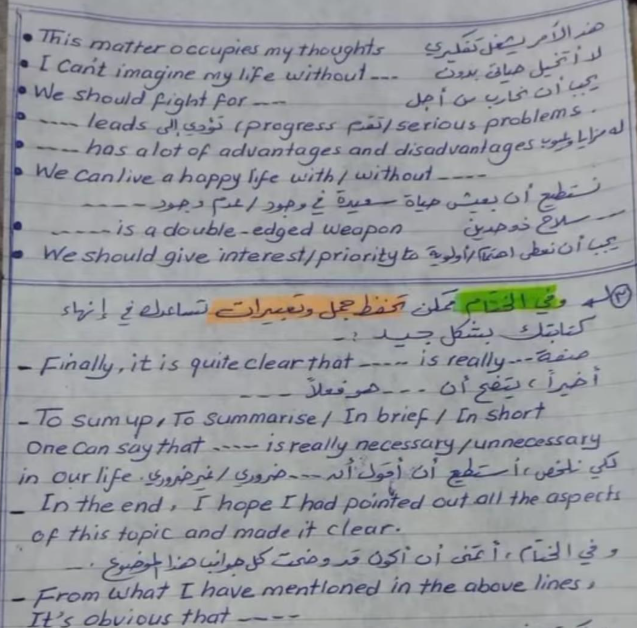 • This matter occupies my thoughts هذا الأمر يشغل تفكيري
• I can't imagine my life without --- لا أتخيل حياتي بدون
• We should fight for --- يجب أن نحارب من أجل
• ---- leads تؤدي إلى (progress تقدم / serious problems.
• ---- has a lot of advantages and disadvantages له مزايا وعيوب
• We can live a happy life with / without ----
نستطيع أن نعيش حياة سعيدة في وجود / عدم وجود -----
• ----- is a double-edged weapon سلاح ذو حدين ---
• We should give interest/priority to يجب أن نعطي اهتمام/أولوية
(٣) وفي الختام يمكن تحفظ جمل وتعبيرات تساعدك في إنهاء
كتابتك بشكل جيد :-
- Finally, it is quite clear that ----- is really --- صفة
أخيراً، يتضح أن --- هو فعلاً ----
- To sum up, To summarise / In brief / In short
One can say that ---- is really necessary / unnecessary
in our life. لكي نلخص، أستطيع أن أقول أن --- ضروري / غير ضروري
- In the end, I hope I had pointed out all the aspects
of this topic and made it clear.
وفي الختام، أتمنى أن أكون قد وضحت كل جوانب هذا الموضوع.
- From what I have mentioned in the above lines,
It's obvious that ----